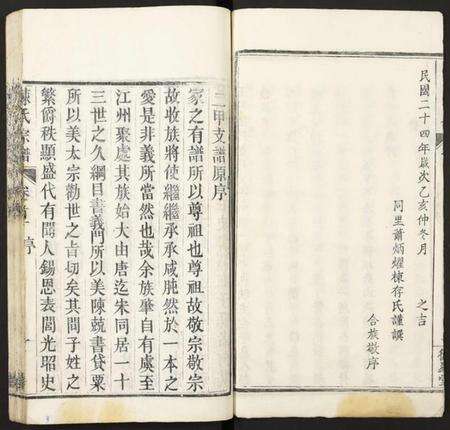 民國二十四年歲次乙亥仲冬月 之吉
同里蕭炳耀棟存氏謹譔
合族敬序
二甲支譜原序
家之有譜所以尊祖也尊祖故敬宗敬宗
故收族將使繼繼承承咸肫然於一本之
愛是非義所當然也哉余族肇自有虞至
江州聚處其族始大由唐迄宋同居一十
三世之久綱目書義門所以美陳兢書貸粟
所以美太宗勸世之旨切矣其間子姓之
繁爵秩顯盛代有聞人錫恩表閭光昭史
陳氏宗譜 卷首 序